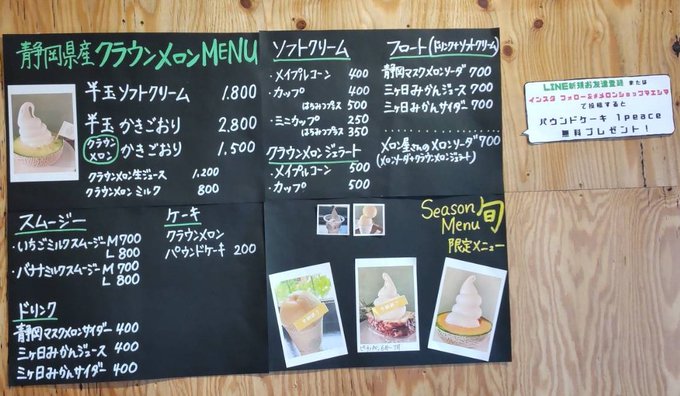 静岡県産クラウンメロンMENU
半玉ソフトクリーム 1.800
半玉かきごおり 2,800
クラウンメロン かきごおり 1,500
クラウンメロン生ジュース 1,200
クラウンメロン ミルク 800
スムージー
・いちごミルクスムージーM700
L 800
・バナナミルクスムージーM 700
L 800
ケーキ
クラウンメロン
パウンドケーキ 200
ドリンク
静岡マスクメロンサイダー 400
三ヶ日みかんジュース 400
三ヶ日みかんサイダー 400
ソフトクリーム
・メイプルコーン 400
・カップ 400
はちみつプラス 500
・ミニカップ 250
はちみつプラス 350
クラウンメロンジェラート
・メイプルコーン 500
・カップ 500
フロート(ドリンク+ソフトクリーム)
静岡マスクメロンソーダ 700
三ヶ日みかんジュース 700
三ヶ日みかんサイダー 700
メロン屋さんのメロンソーダ700
(メロンソーダ+クラウンメロンジェラート)
Season旬
Menu
限定メニュー
LINE新規お友達登録 または
インスタ フォロー&#メロンショップマエシマ
で投稿すると
パウンドケーキ 1peace
無料プレゼント!